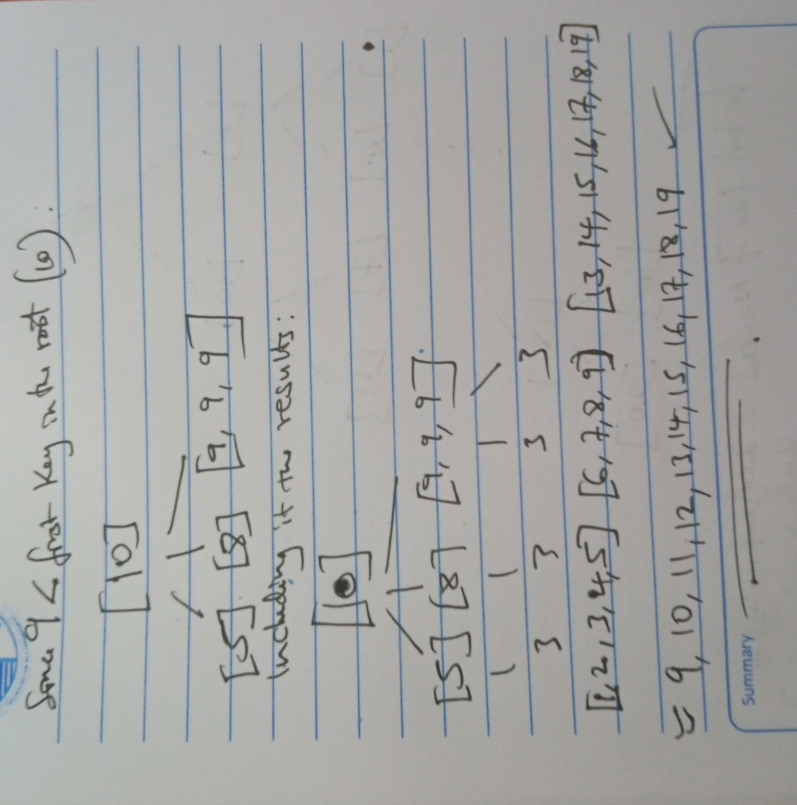 Since 9 < first key in the root (10):
[10]
[5] [8] [9, 9, 9]
Including it the results:
[10]
[5] [8] [9, 9, 9]
3 3 3 3
[1,2,3,4,5] [6,7,8,9) [13,14,15,16,17,18,19]
= 9, 10, 11, 12, 13, 14, 15, 16, 17, 18, 19 ✓
Summary